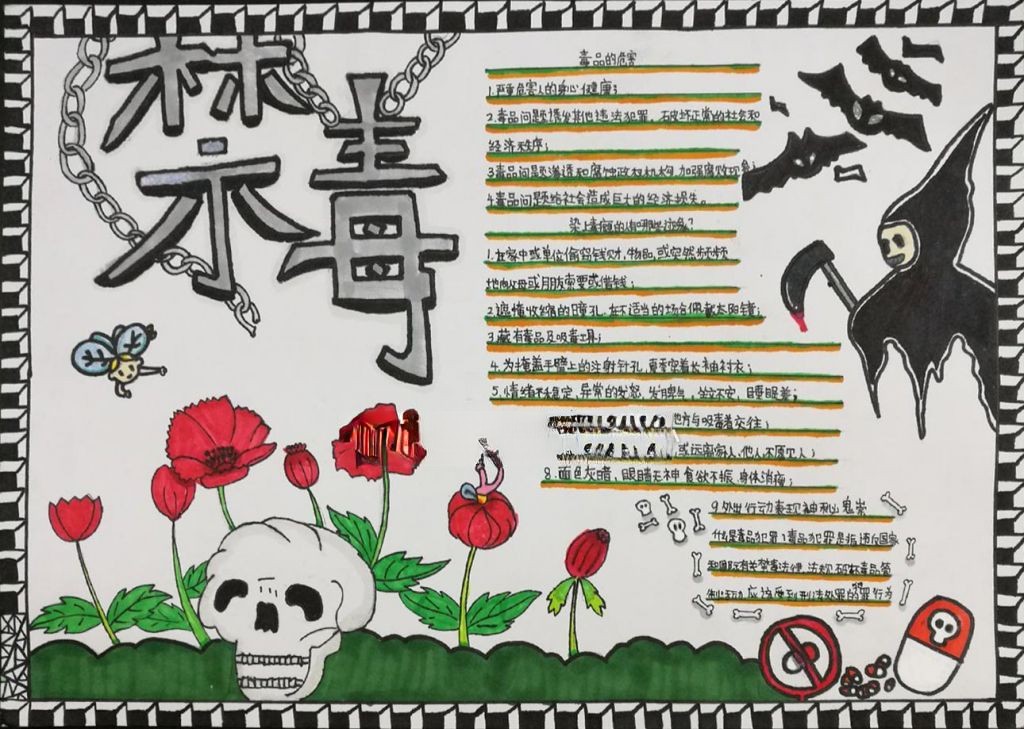 禁毒
毒品的危害
1.严重危害人的身心健康;
2.毒品问题诱发其他违法犯罪,破坏正常的社会和
经济秩序;
3.毒品问题渗透和腐蚀政权机构,加强腐败现象;
4.毒品问题给社会造成巨大的经济损失。
染上毒瘾的人有哪些迹象?
1.在家中或单位偷窃钱财、物品,或突然频频
地向父母或朋友索要或借钱;
2.遮掩收缩的瞳孔,在不适当的场合佩戴太阳镜;
3.藏有毒品及吸毒工具;
4.为掩盖手臂上的注射针孔,穿着长袖衬衣;
5.情绪不稳定,异常的发怒、发脾气,坐立不安,睡眠差;
地方与吸毒者交往;
或远离家人、他人不愿见人;
8.面色灰暗、眼睛无神、食欲不振、身体消瘦;
9.外出行动表现神秘鬼祟
什么是毒品犯罪?毒品犯罪是指违反国家
和国际有关禁毒法律、法规,破坏毒品管
制活动,应该受到刑法处罚的犯罪行为